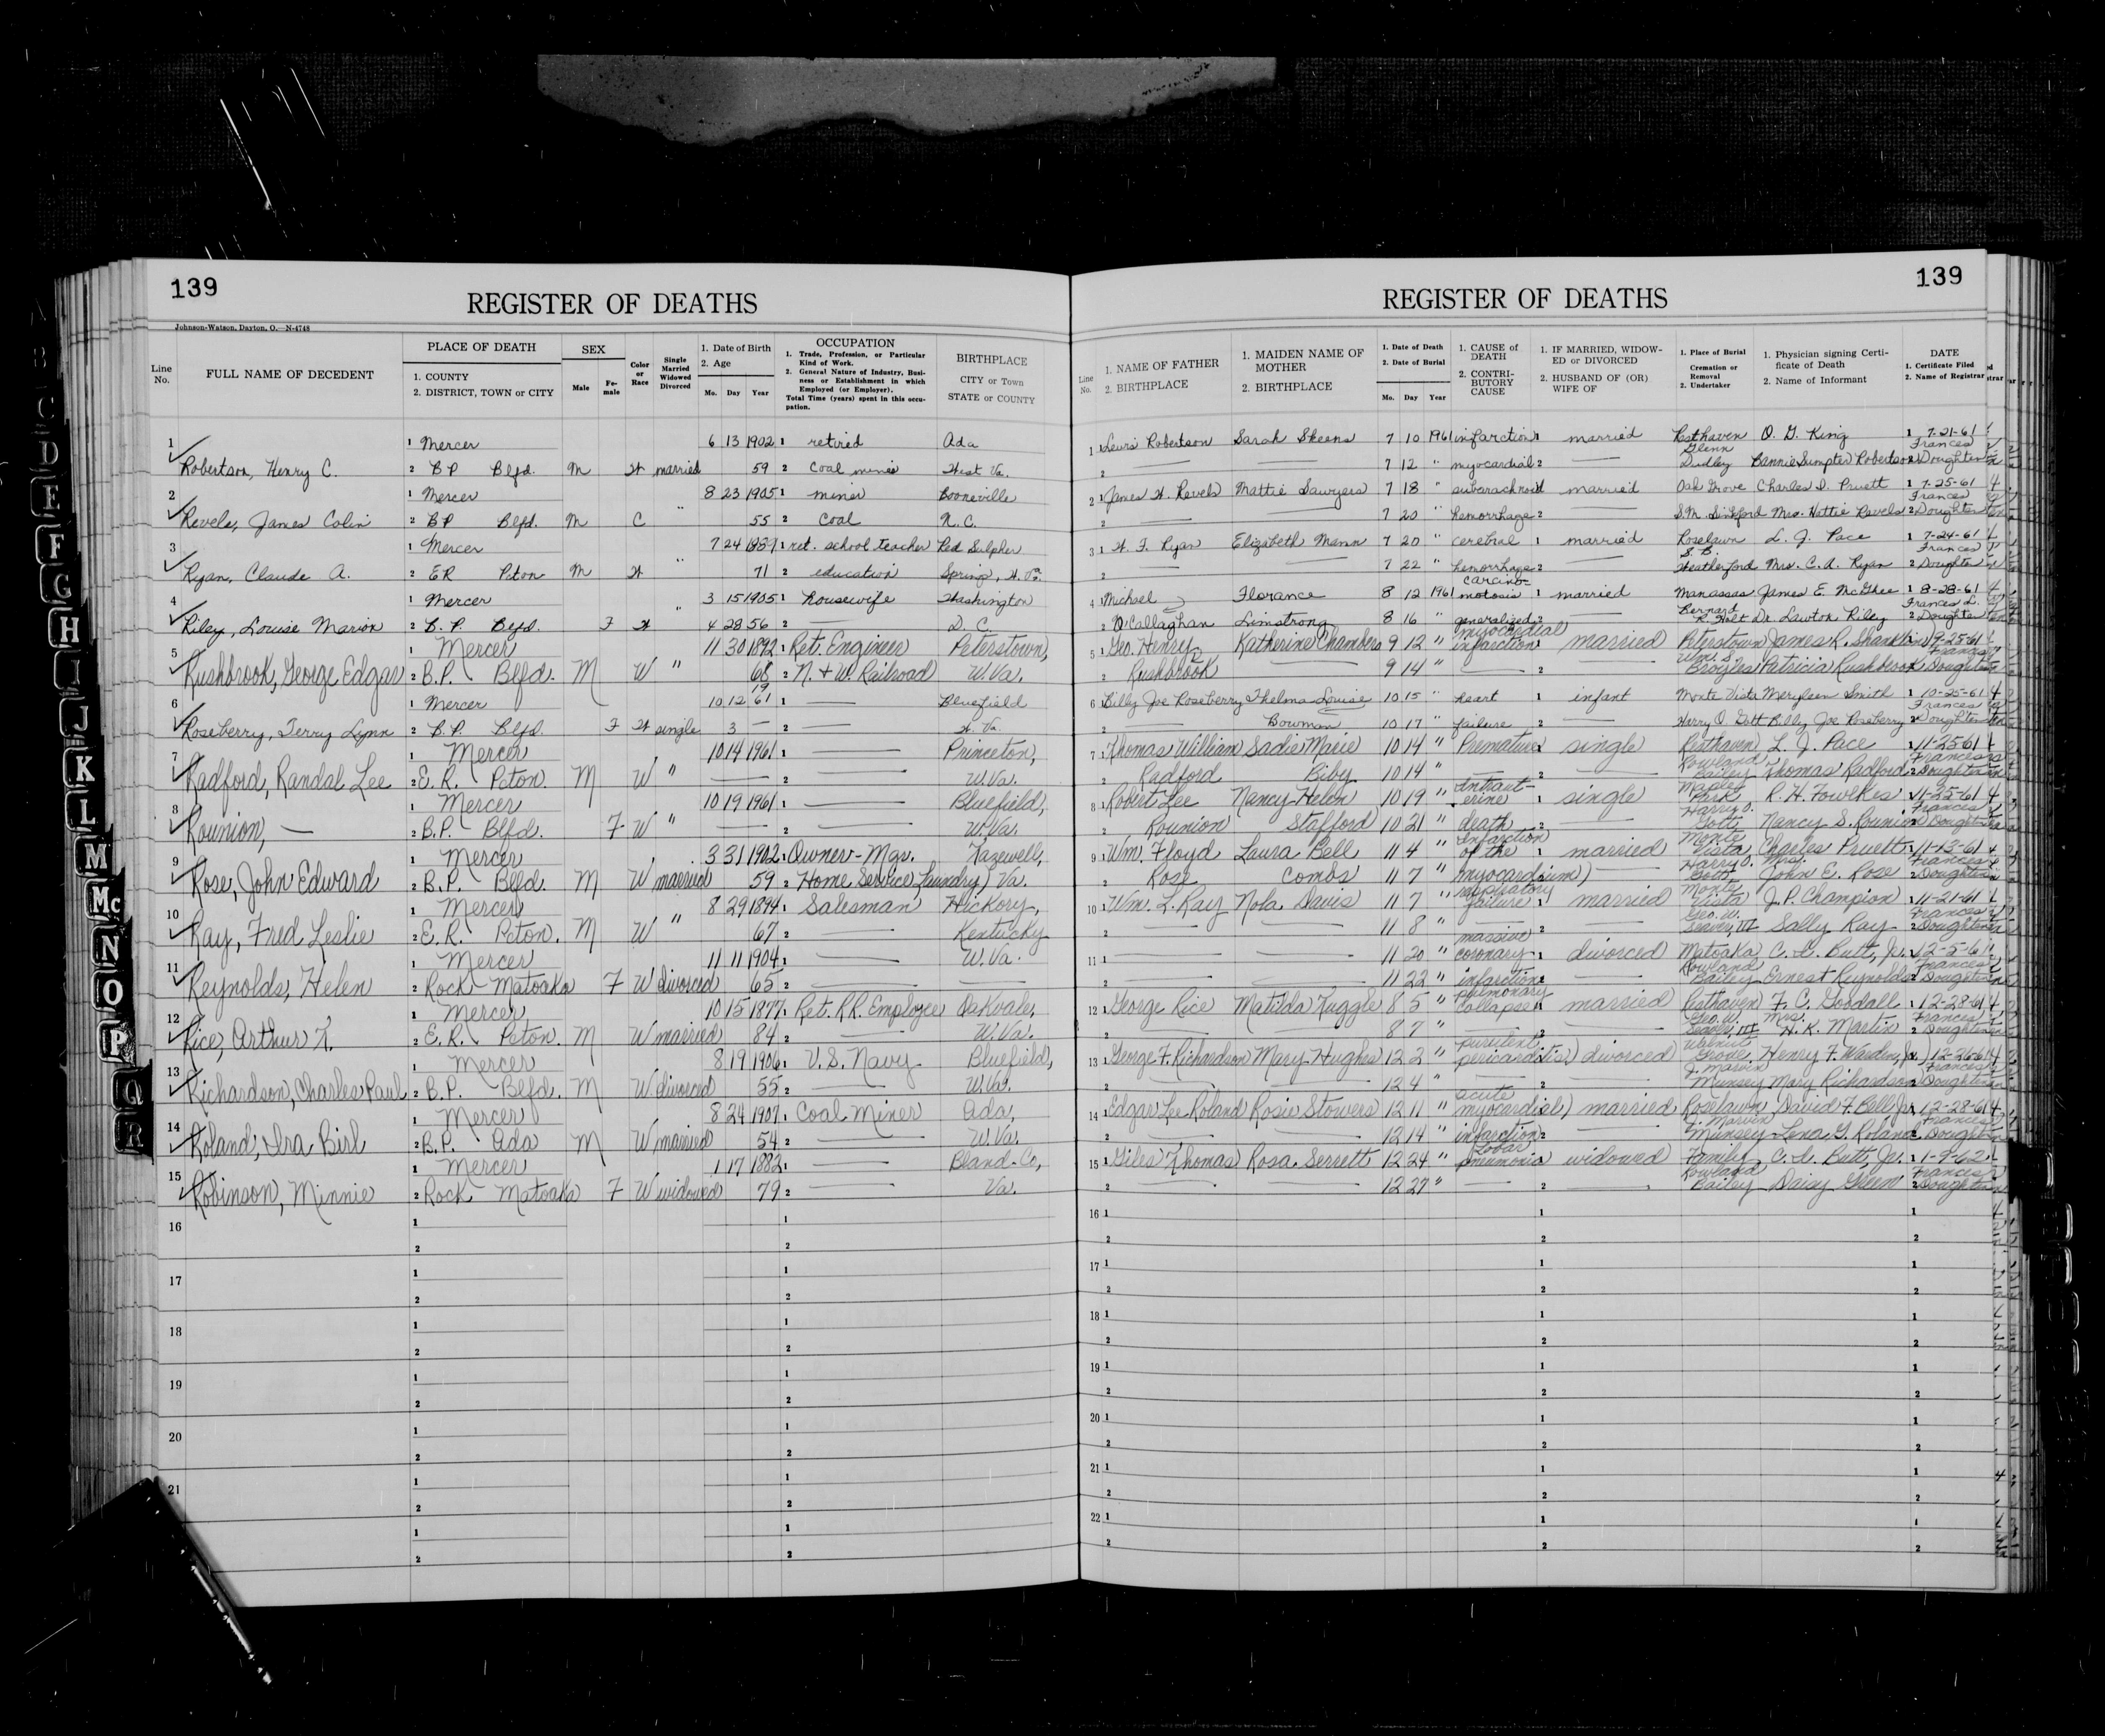 139
REGISTER OF DEATHS
Johnson-Watson, Dayton, O.—N-4748
Line No.
FULL NAME OF DECEDENT
PLACE OF DEATH
1. COUNTY
2. DISTRICT, TOWN or CITY
SEX
Male
Female
Color or Race
Single Married Widowed Divorced
1. Date of Birth
2. Age
Mo. Day Year
OCCUPATION
1. Trade, Profession, or Particular Kind of Work.
2. General Nature of Industry, Business or Establishment in which Employed (or Employer).
Total Time (years) spent in this occupation.
BIRTHPLACE
CITY or Town
STATE or COUNTY
1 1 Mercer 6 13 1902 1 retired Ada
Robertson, Henry C. 2 B P Blfd. M W married 59 2 Coal mines West Va.
2 1 Mercer 8 23 1905 1 miner Booneville
Revels, James Colin 2 B P Blfd. M C " 55 2 Coal N.C.
3 1 Mercer 7 24 1 ret. school teacher Red Sulpher
Ryan, Claude A. 2 E R Pcton M W " 71 2 education Springs, W. Va.
4 1 Mercer 3 15 1905 1 housewife Washington
Riley, Louise Marion 2 B. P. Blfd. F W " 4 28 56 2 — D. C.
5 1 Mercer 11 30 1892 1 Ret. Engineer Peterstown,
Rushbrook, George Edgar 2 B.P. Blfd. M W " 68 2 N. & W. Railroad W.Va.
6 1 Mercer 10 12 1961 1 — Bluefield
Roseberry, Terry Lynn 2 B.P. Blfd. F W single 3 — 2 — W. Va.
7 1 Mercer 10 14 1961 1 — Princeton,
Radford, Randal Lee 2 E. R. Pcton. M W " — 2 — W.Va.
8 1 Mercer 10 19 1961 1 — Bluefield,
Rounion, — 2 B.P. Blfd. F W " — 2 — W.Va.
9 1 Mercer 3 31 1902 1 Owner-Mgr. Tazewell,
Rose, John Edward 2 B.P. Blfd. M W married 59 2 Home Service Laundry Va.
10 1 Mercer 8 29 1894 1 Salesman Hickory,
Ray, Fred Leslie 2 E. R. Pcton. M W " 67 2 — Kentucky
11 1 Mercer 11 11 1904 1 — W.Va.
Reynolds, Helen 2 Rock Matoaka F W divorced 65 2 — —
12 1 Mercer 10 15 1877 1 Ret. RR. Employee Oakvale,
Rice, Arthur T. 2 E. R. Pcton. M W married 84 2 — W.Va.
13 1 Mercer 8 19 1906 1 U.S. Navy Bluefield,
Richardson, Charles Paul 2 B.P. Blfd. M W divorced 55 2 — W.Va.
14 1 Mercer 8 24 1907 1 Coal Miner Ada,
Roland, Ira Birl 2 B.P. Ada M W married 54 2 — W.Va.
15 1 Mercer 1 17 1882 1 — Bland Co,
Robinson, Minnie 2 Rock Matoaka F W widowed 79 2 — Va.
16
17
18
19
20
21
139
REGISTER OF DEATHS
Line No.
1. NAME OF FATHER
2. BIRTHPLACE
1. MAIDEN NAME OF MOTHER
2. BIRTHPLACE
1. Date of Death
2. Date of Burial
Mo. Day Year
1. CAUSE of DEATH
2. CONTRIBUTORY CAUSE
1. IF MARRIED, WIDOWED or DIVORCED
2. HUSBAND OF (OR) WIFE OF
1. Place of Burial Cremation or Removal
2. Undertaker
1. Physician signing Certificate of Death
2. Name of Informant
DATE
1. Certificate Filed
2. Name of Registrar
1 1 Lewis Robertson Sarah Skeens 7 10 1961 infarction 1 married Resthaven O. G. King 1 7-21-61
2 — — 7 12 " myocardial 2 — Glenn Dudley Bannie Sumpter Robertson 2 Frances Doughton
2 1 James W. Revels Mattie Sawyers 7 18 " subarachnoid 1 married Oak Grove Charles D. Pruett 1 7-25-61
2 — — 7 20 " hemorrhage 2 — S.M. Mrs. Hattie Revels 2 Frances Doughton
3 1 W. F. Ryan Elizabeth Mann 7 20 " cerebral 1 married Roselawn L. J. Pace 1 7-24-61
2 — — 7 22 " hemorrhage 2 — S. B. Heatherford Mrs. C. A. Ryan 2 Frances Doughton
4 1 Michael Florance 8 12 1961 carcinomotosis 1 married Manassas James E. McGhee 1 8-28-61
2 O'Callaghan Limstrong 8 16 " generalized 2 Bernard R. Holt Dr. Lawton Riley 2 Frances L. Doughton
5 1 Geo. Henry Katherine Chambers 9 12 " myocardial infarction 1 married Peterstown James R. Shanklin 1 9-25-61
2 Rushbrook — 9 14 " — 2 — Wm. S. Broyles Patricia Rushbrook 2 Frances Doughton
6 1 Billy Joe Roseberry Thelma Louise 10 15 " heart 1 infant Monte Vista Smith 1 10-25-61
2 Bowman 10 17 " failure 2 — Harry O. Gott Billy Joe Roseberry 2 Frances Doughton
7 1 Thomas William Sadie Marie 10 14 " Premature 1 single Resthaven L. J. Pace 1 11-25-61
2 Radford Biby 10 14 " — 2 — Rowland Bailey Thomas Radford 2 Frances Doughton
8 1 Robert Lee Nancy Helen 10 19 " Intrauterine 1 single Maple Park R. H. Fowlkes 1 11-25-61
2 Rounion Stafford 10 21 " death 2 — Harry O. Gott Nancy S. Rounion 2 Frances Doughton
9 1 Wm. Floyd Laura Bell 11 4 " infarction of the 1 married Monte Vista Charles Pruett 1 11-13-61
2 Rose Combs 11 7 " myocardium 2 — Harry O. Gott Mrs. John E. Rose 2 Frances Doughton
10 1 Wm. L. Ray Nola Davis 11 7 " respiratory failure 1 married Monte Vista J. P. Champion 1 11-21-61
2 — — 11 8 " 2 — Geo. W. Seaver III Sally Ray 2 Frances Doughton
11 1 — — 11 20 " massive coronary 1 divorced Matoaka C. L. Butt, Jr. 1 12-5-61
2 — — 11 22 " infarction 2 — Rowland Bailey Ernest Reynolds 2 Frances Doughton
12 1 George Rice Matilda Tuggle 8 5 " pulmonary collapse 1 married Resthaven F. C. Goodall 1 12-28-61
2 — — 8 7 " — 2 — Geo. W. Seaver III Mrs. H. K. Martin 2 Frances Doughton
13 1 George F. Richardson Mary Hughes 12 2 " purulent pericarditis 1 divorced Walnut Grove Henry F. Warden, Jr. 1 12-26-61
2 — — 12 4 " 2 — J. Marvin Munsey Mary Richardson 2 Frances Doughton
14 1 Edgar Lee Roland Rosie Stowers 12 11 " acute myocardial 1 married Roselawn David F. Bell Jr. 1 12-28-61
2 — — 12 14 " infarction 2 — J. Marvin Munsey Lena G. Roland 2 Frances Doughton
15 1 Giles Thomas Rosa Serrett 12 24 " lobar pneumonia 1 widowed Family C. L. Butt, Jr. 1 1-9-62
2 — — 12 27 " — 2 — Rowland Bailey Daisy Green 2 Frances Doughton
16
17
18
19
20
21
22
D
E
F
G
H
I
J
K
L
M
Mc
N
O
P
Q
R